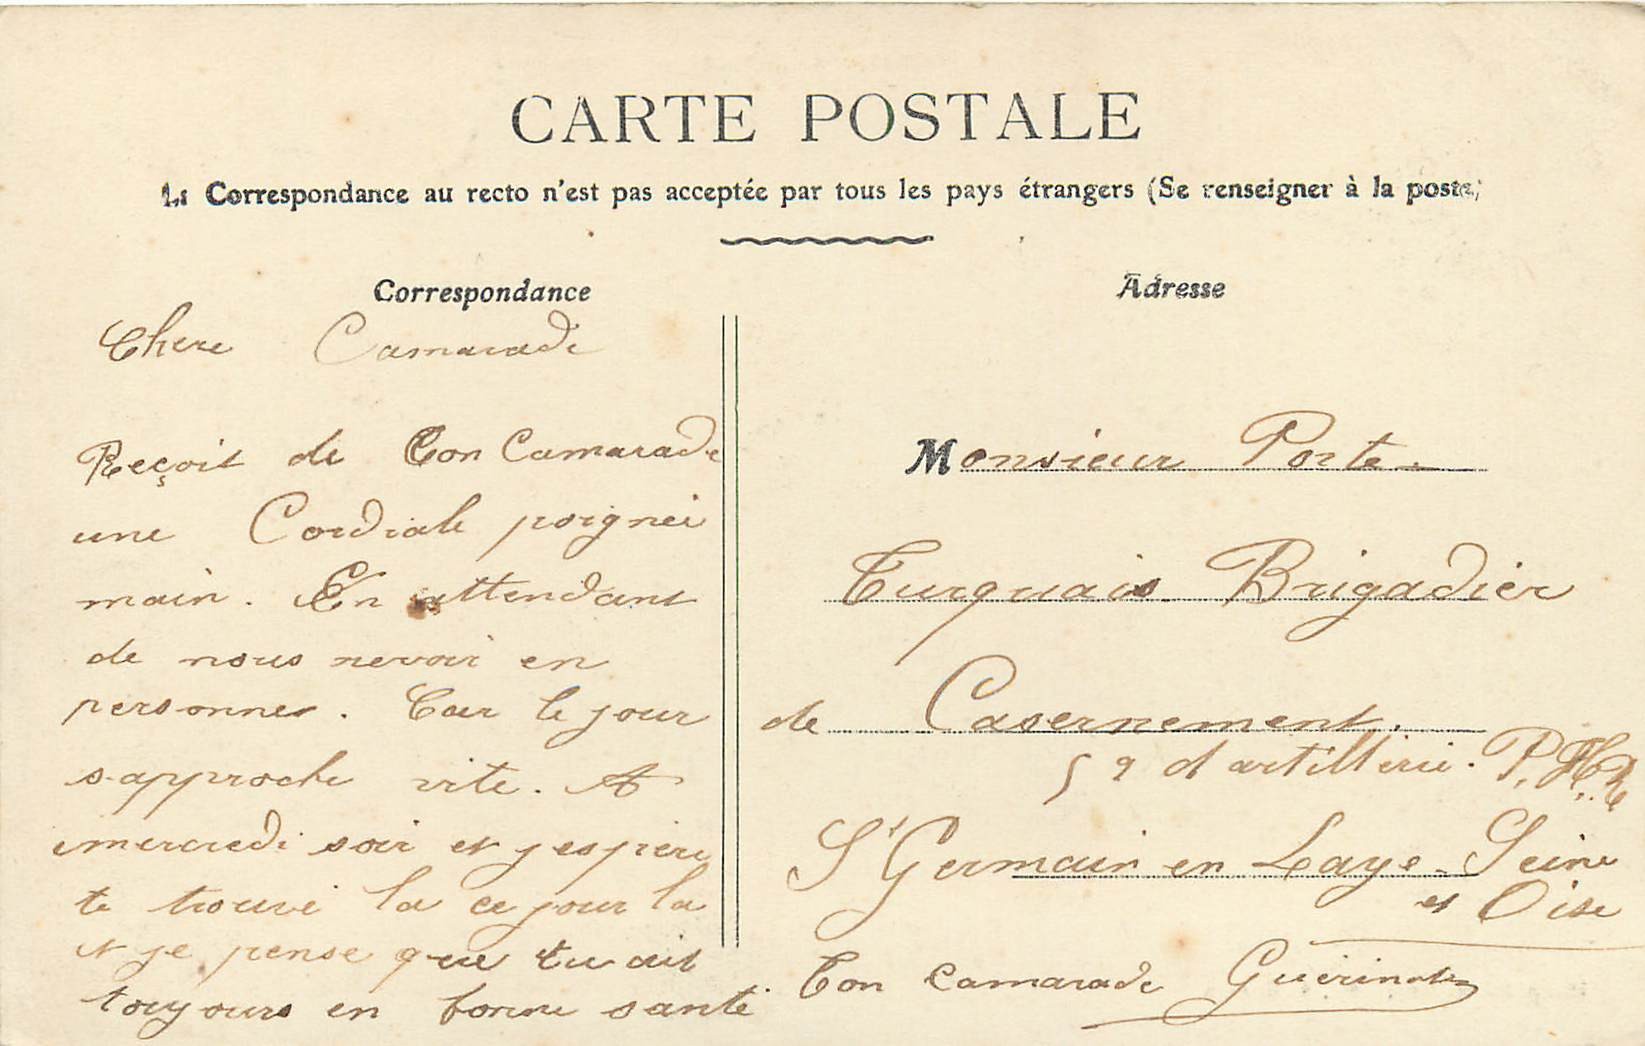 CARTE POSTALE
La Correspondance au recto n'est pas acceptée par tous les pays étrangers (Se renseigner à la poste)
Correspondance
Chere Camarade
Reçoit de Ton Camarade
une Cordiale poignée
main. En attendant
de nous revoir en
personnes. Car le jour
s'approche vite. A
mercredi soir et j'espère
te trouvé la ce jour la
et je pense que tu ait
toujours en bonne santé
Adresse
Monsieur Porte.
Turquais Brigadier
de Casernement.
59 d'artillerie.
St Germain en Laye. Seine
et Oise
Ton camarade Guerinot